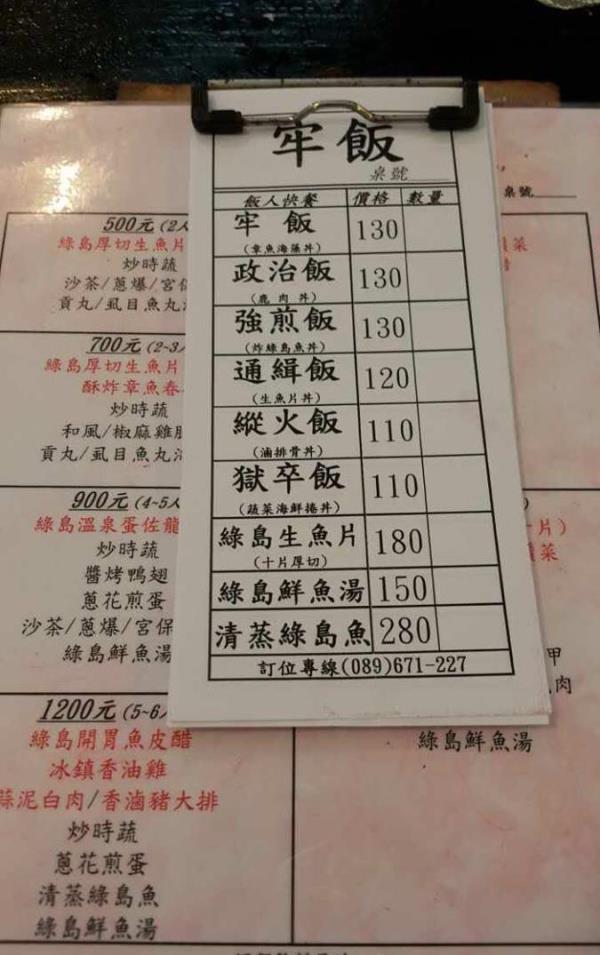 牢飯
桌號
飯人快餐 價格 數量
牢飯 130
(章魚海藻丼)
政治飯 130
(鹿肉丼)
強煎飯 130
(炸綠島魚丼)
通緝飯 120
(生魚片丼)
縱火飯 110
(滷排骨丼)
獄卒飯 110
(蔬菜海鮮捲丼)
綠島生魚片 180
(十片厚切)
綠島鮮魚湯 150
清蒸綠島魚 280
訂位專線(089)671-227
500元(2人
綠島厚切生魚片
炒時蔬
沙茶/蔥爆/宮保
貢丸/虱目魚丸
700元(2~3
綠島厚切生魚片
酥炸章魚春
炒時蔬
和風/椒麻雞
貢丸/虱目魚丸
900元(4~5人
綠島溫泉蛋佐龍
炒時蔬
醬烤鴨翅
蔥花煎蛋
沙茶/蔥爆/宮保
綠島鮮魚湯
1200元(5~6
綠島開胃魚皮醋
冰鎮香油雞
蒜泥白肉/香滷豬大排
炒時蔬
蔥花煎蛋
清蒸綠島魚
綠島鮮魚湯
桌號
菜
片)
菜
甲
肉
綠島鮮魚湯